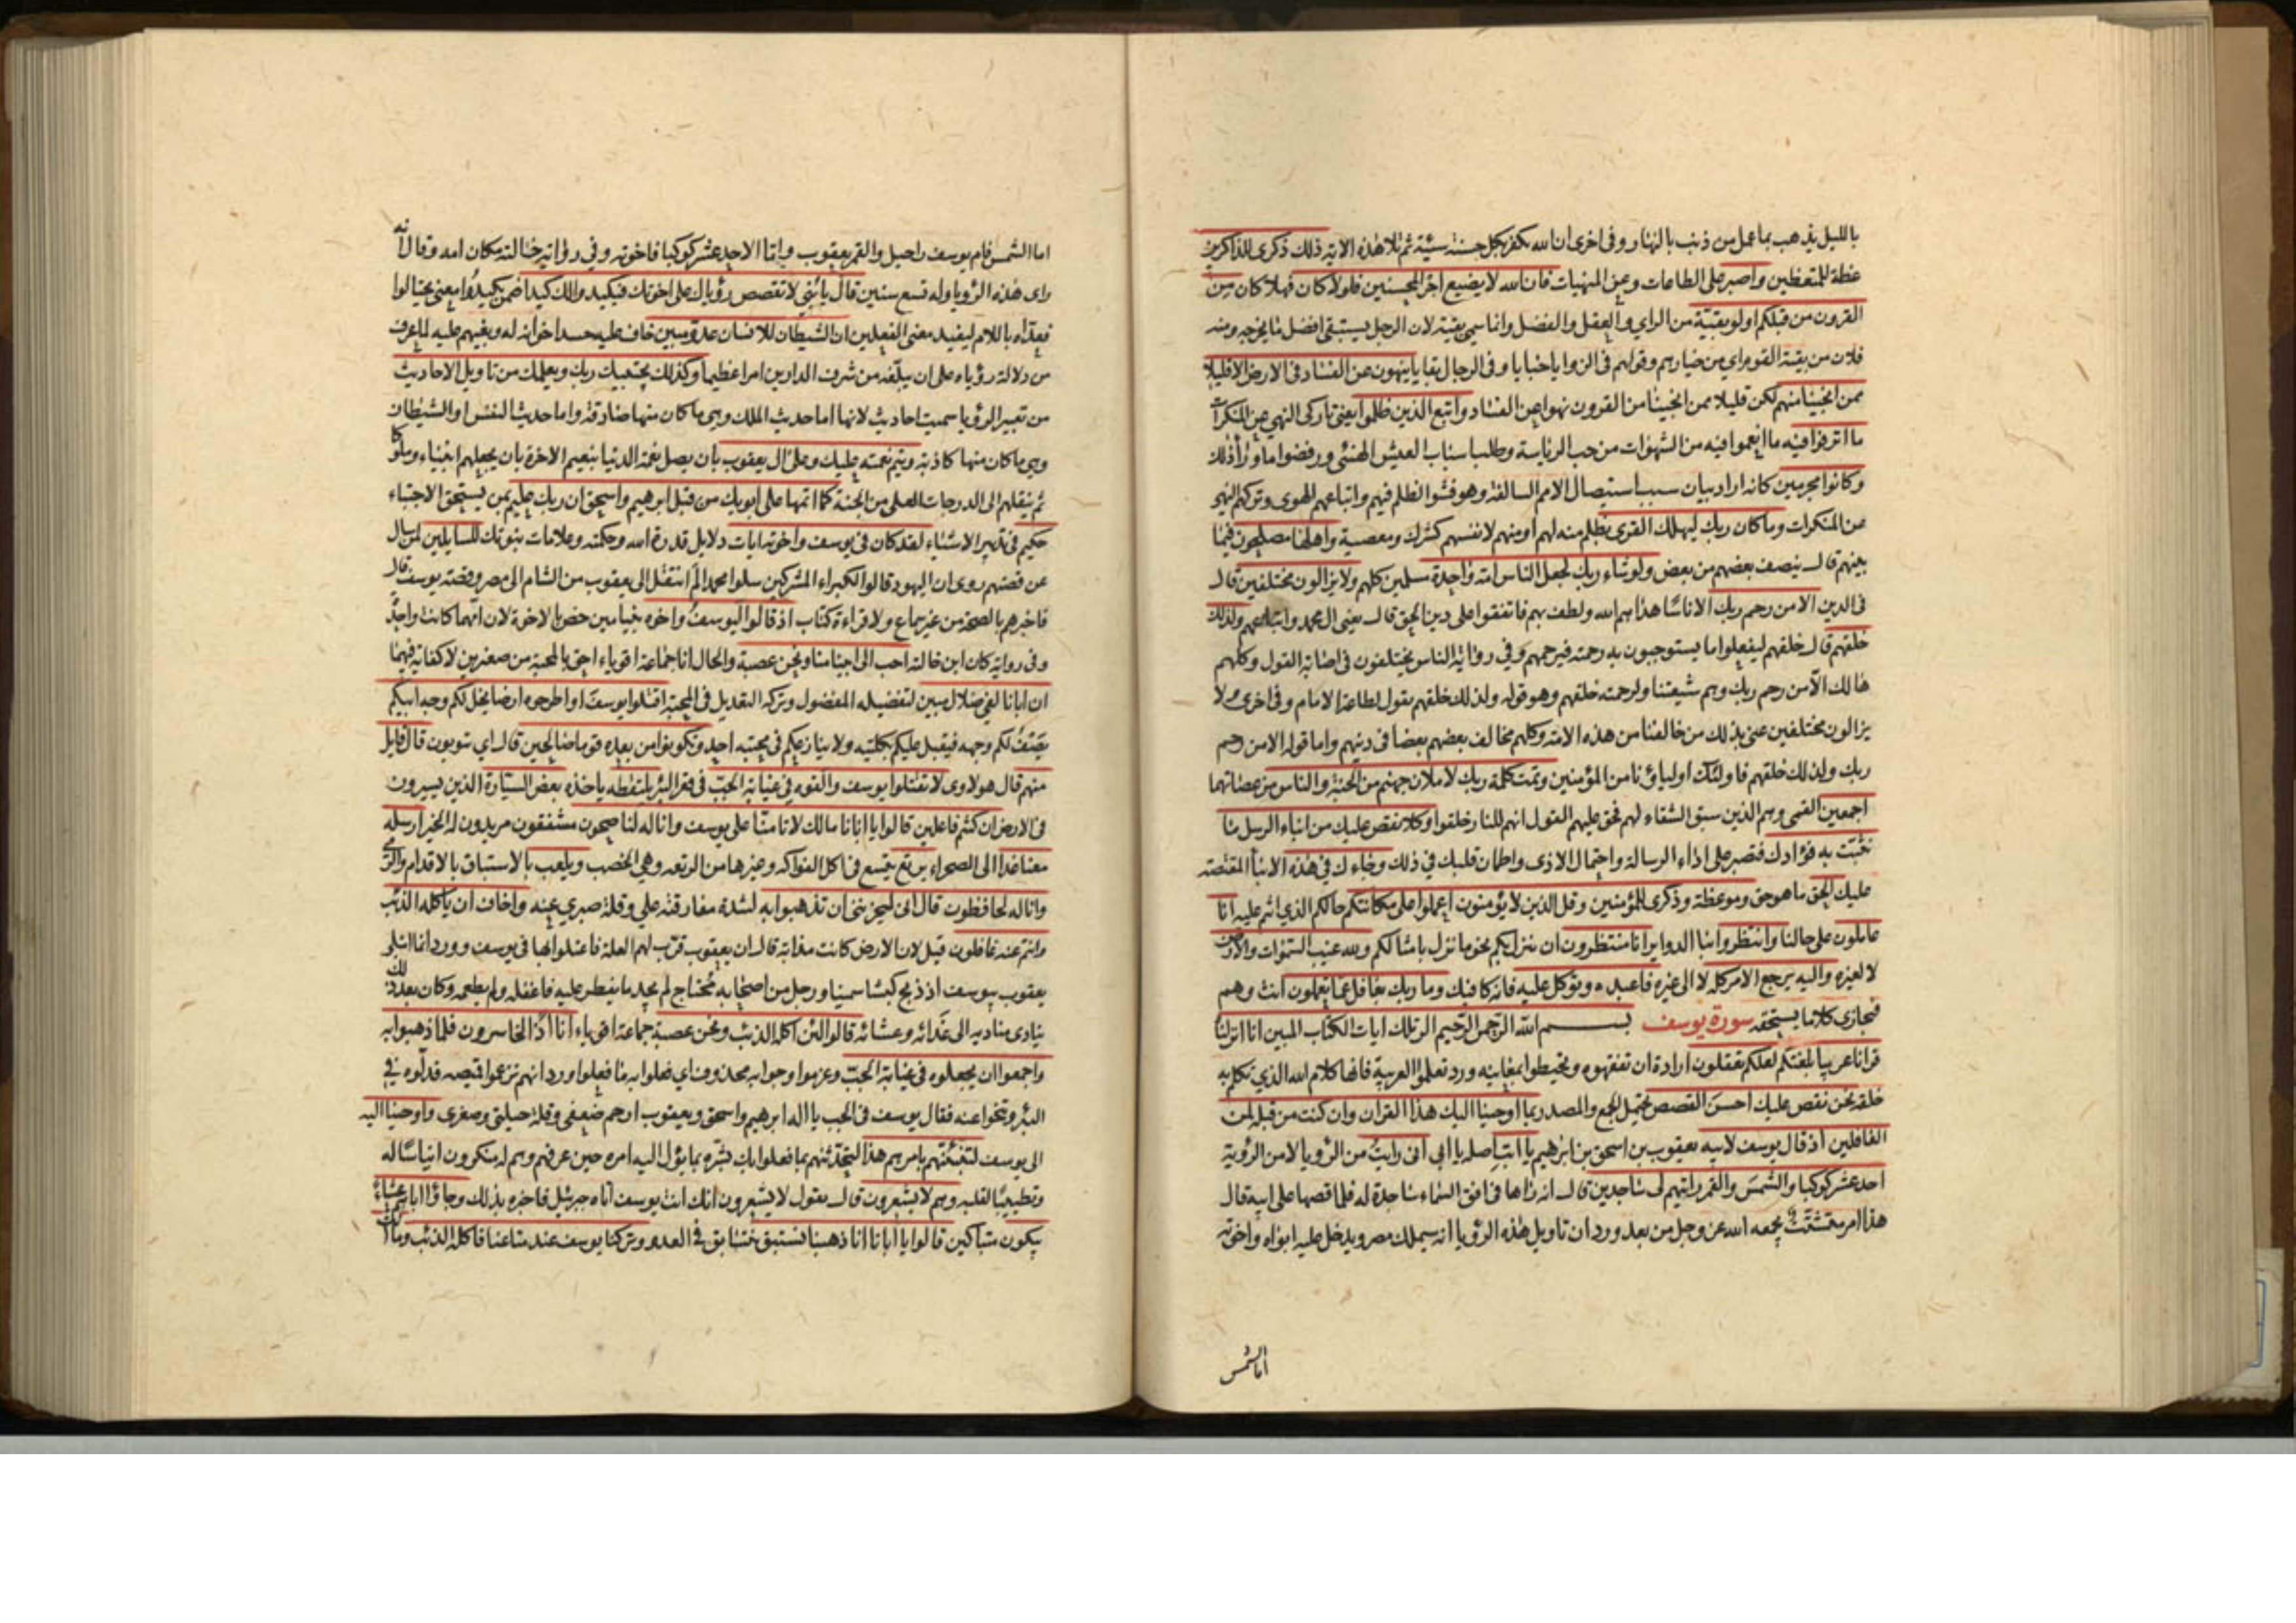 بالليل يذهب بما عمل من ذنب بالنهار وفى اخرى ان الله يكفر بكل حسنة سيئة ثم تلا هذه الاية ذلك ذكرى للذاكرين
عظة للمتعظين واصبر على الطاعات وعن المنهيات فان الله لا يضيع اجر المحسنين فلولا كان فهلا كان من
القرون من قبلكم اولو بقية من الراي والعقل والفضل وانما سمي بقية لان الرجل يستبقي افضل ما يخرجه ومنه
فلان من بقية القوم اي من خيارهم وقولهم فى الزوايا خبايا وفى الرجال بقايا ينهون عن الفساد فى الارض الا قليلا
ممن انجينا منهم لكن قليلا ممن انجينا من القرون نهوا عن الفساد واتبع الذين ظلموا يعني تاركى النهي عن المنكرات
ما اترفوا فيه ما انعموا فيه من الشهوات من حب الرياسة وطلب اسباب العيش الهنئ ورفضوا ما وراء ذلك
وكانوا مجرمين كانه اراد بيان سبب استيصال الامم السالفة وهو فشوا الظلم فيهم واتباعهم الهوى وتركهم النهي
عن المنكرات وما كان ربك ليهلك القرى بظلم منه لهم او منهم لانفسهم كشرك ومعصية واهلها مصلحون فيما
بينهم قال ينصف بعضهم من بعض ولو شاء ربك لجعل الناس امة واحدة مسلمين كلهم ولا يزالون مختلفين قال
فى الدين الا من رحم ربك الا ناسا هداهم الله ولطف بهم فاتفقوا على دين الحق قال يعني ال محمد واتباعهم ولذلك
خلقهم قال خلقهم ليفعلوا ما يستوجبون به رحمته فيرحمهم وفي رواية الناس يختلفون فى اصابة القول وكلهم
هالك الا من رحم ربك وهم شيعتنا ولرحمته خلقهم وهو قوله ولذلك خلقهم يقول لطاعة الامام وفى اخرى ولا
يزالون مختلفين عنى بذلك من خالفنا من هذه الامة وكلهم مخالف بعضهم بعضا فى دينهم واما قوله الا من رحم
ربك ولذلك خلقهم فاولئك اولياؤنا من المؤمنين وتمت كلمة ربك لاملان جهنم من الجنة والناس من عصاتهما
اجمعين القمى وهم الذين سبق الشقاء لهم فحق عليهم القول انهم للنار خلقوا وكلا نقص عليك من انباء الرسل ما
نثبت به فؤادك فتصبر على اداء الرسالة واحتمال الاذى واطمان قلبك في ذلك وجاءك في هذه الانبأ المقتصة
عليك الحق ما هو حق وموعظة وذكرى للمؤمنين وقل للذين لا يؤمنون اعملوا على مكانتكم حالكم الذي انتم عليه انا
عاملون على حالنا وانتظروا بنا الدواير انا منتظرون ان ينزل بكم نحو ما نزل بامثالكم ولله غيب السموات والارض
لا لغيره واليه يرجع الامر كله لا الى غيره فاعبده وتوكل عليه فانه كافيك وما ربك بغافل عما يعملون انت وهم
فيجازى كلا ما يستحقه سورة يوسف بسم الله الرحمن الرحيم الر تلك ايات الكتاب المبين انا انزلناه
قرانا عربيا بلغتكم لعلكم تعقلون ارادة ان تفقهوه وتحيطوا بمعانيه ورد تعلموا العربية فانها كلام الله الذي تكلم به
خلقه نحن نقص عليك احسن القصص يحتمل الجمع والمصدر بما اوحينا اليك هذا القران وان كنت من قبله لمن
الغافلين اذ قال يوسف لابيه يعقوب بن اسحق بن ابرهيم يا ابت اصله يا ابي انى رايت من الرؤيا لا من الرؤية
احد عشر كوكبا والشمس والقمر رايتهم لى ساجدين قال انه راها فى افق السماء ساجدة له فلما قصها على ابيه قال
هذا امر متشتت يجمعه الله عز وجل من بعد ورد ان تاويل هذه الرؤيا انه سيملك مصر ويدخل عليه ابواه واخوته
اما الشمس
اما الشمس فام يوسف راحيل والقمر يعقوب واما الاحد عشر كوكبا فاخوته وفي رواية خالته مكان امه وقال انه
راى هذه الرؤيا وله تسع سنين قال يا بني لا تقصص رؤياك على اخوتك فيكيدوا لك كيدا ضمن يكيدوا معنى يحتالوا
فعداه باللام ليفيد معنى الفعلين ان الشيطان للانسان عدو مبين خاف عليه حسد اخوانه له وبغيهم عليه لما عرف
من دلالة رؤياه على ان يبلغه من شرف الدارين امرا عظيما وكذلك يجتبيك ربك ويعلمك من تاويل الاحاديث
من تعبير الرؤيا سميت احاديث لانها اما حديث الملك وهي ما كان منها صادقة واما حديث النفس او الشيطان
وهي ما كان منها كاذبة ويتم نعمته عليك وعلى ال يعقوب بان يصل نعمة الدنيا بنعيم الاخرة بان يجعلهم انبياء وملوكا
ثم ينقلهم الى الدرجات العلى من الجنة كما اتمها على ابويك من قبل ابرهيم واسحق ان ربك عليم بمن يستحق الاجتباء
حكيم فى تدبير الاشياء لقد كان فى يوسف واخوته ايات دلايل قدرة الله وحكمته وعلامات نبوتك للسايلين لمن سال
عن قصتهم روى ان اليهود قالوا لكبراء المشركين سلوا محمدا لم انتقل ال يعقوب من الشام الى مصر وقصة يوسف قال
فاخبرهم بالصحة من غير سماع ولا قراءة كتاب اذ قالوا ليوسف واخوه بنيامين خص بالاخوة لان امهما كانت واحدة
وفى رواية كان ابن خالته احب الى ابينا منا ونحن عصبة والحال انا جماعة اقوياء احق بالمحبة من صغيرين لا كفاية فيهما
ان ابانا لفى ضلال مبين لتفضيله المفضول وتركه التعديل فى المحبة اقتلوا يوسف او اطرحوه ارضا يخل لكم وجه ابيكم
يصف لكم وجهه فيقبل عليكم بكليته ولا ينازعكم فى محبته احد وتكونوا من بعده قوما صالحين قال اي تتوبون قال قايل
منهم قال هو لاوى لا تقتلوا يوسف والقوه في غيابة الجب فى قعر البئر يلتقطه ياخذه بعض السيارة الذين يسيرون
فى الارض ان كنتم فاعلين قالوا يا ابانا مالك لا تامنا على يوسف وانا له لناصحون مشفقون مريدون له الخير ارسله
معنا غدا الى الصحراء يرتع يتسع فى اكل الفواكه وغيرها من الرتعة وهي الخصب ويلعب بالاستباق بالاقدام والرمى
وانا له لحافظون قال انى ليحزنني ان تذهبوا به لشدة مفارقته على وقلة صبري عنه واخاف ان ياكله الذئب
وانتم عنه غافلون قيل لان الارض كانت مذابة قال ان يعقوب قرب لهم العلة فاعتلوا بها فى يوسف وورد انما ابتلى
يعقوب بيوسف اذ ذبح كبشا سمينا ورجل من اصحابه محتاج لم يجد ما يفطر عليه فاغفله ولم يطعمه وكان بعد ذلك
ينادى مناديه الى غدائه وعشائه قالوا لئن اكله الذئب ونحن عصبة جماعة اقوياء انا اذا لخاسرون فلما ذهبوا به
واجمعوا ان يجعلوه فى غيابة الجب وعزموا وجوابه محذوف اي فعلوا به ما فعلوا ورد انهم نزعوا قميصه فدلوه في
البئر وتنحوا عنه فقال يوسف فى الجب يا اله ابرهيم واسحق ويعقوب ارحم ضعفى وقلة حيلتى وصغرى واوحينا اليه
الى يوسف لتنبئنهم بامرهم هذا لتحدثنهم بما فعلوا بك بشره بما يؤل اليه امره حين عرفهم وهم له منكرون ايناسا له
وتطييبا لقلبه وهم لا يشعرون قال يقول لا يشعرون انك انت يوسف اتاه جبرئيل فاخبره بذلك وجاؤا اباهم عشاء
يبكون متباكين قالوا يا ابانا انا ذهبنا نستبق نتسابق في العدو وتركنا يوسف عند متاعنا فاكله الذئب وما انت